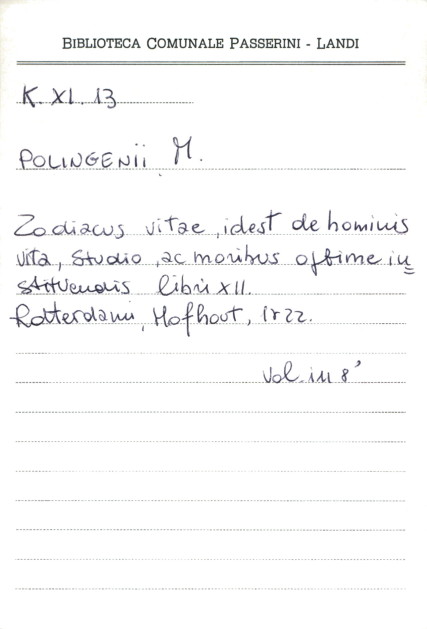 BIBLIOTECA COMUNALE PASSERINI - LANDI
K. XI. 13
POLINGENII M.
Zodiacus vitae, idest de hominis
vita, studio, ac moribus optime in=
stituendis libri XII.
Rotterdami, Hofhout, 1722.
Vol. in 8°